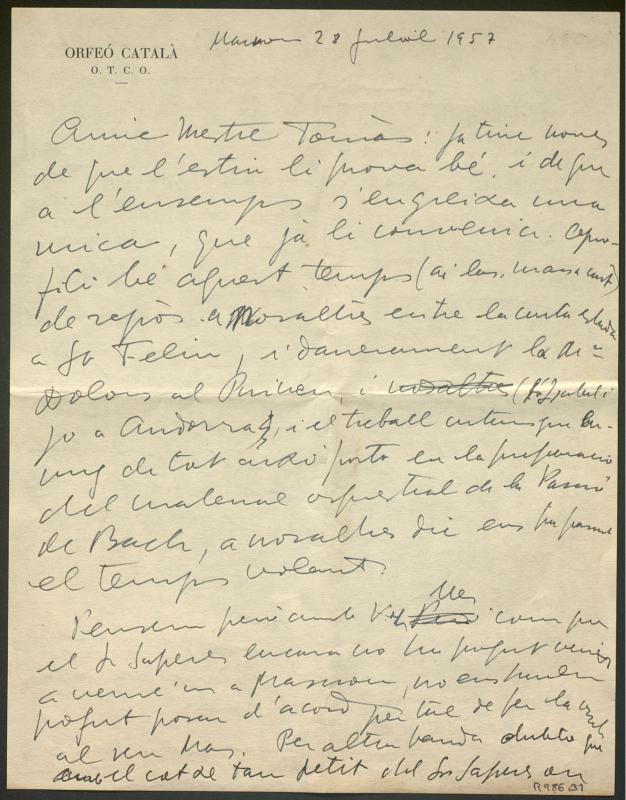 ORFEÓ CATALÀ
O. T. C. O.
28 juliol 1957
Amic Mestre Tomàs: ja tinc noves
de que l'estiu li prova bé, i de que
a l'ensemps s'engreixa una
mica, que ja li convenia. Apro-
fiti bé aquest temps (ai las, massa curt)
de repòs. a Nosaltres entre la curta estada
a St Feliu, i darrerament la
Dolors al Pirineu, i nosaltres (la Isabel i
jo a Andorra), i el treball
de tot això porta en la preparació
del material orquestral de la Passió
de Bach, a nosaltres dic ens ha passat
el temps volant.
Pensem però amb Vs. Mes com que
el Sr Saperes encara no ha pogut venir
a veure'm a, no ens hem
pogut posar d'acord per tal de fer la
al seu Mas. Per altra banda dubto que
amb el cotxe tan petit del Sr Saperes en
R986.31